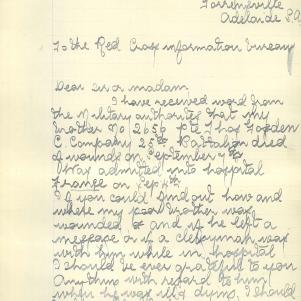 Torrensville
Adelaide S.A
To the Red Cross information bureau
Dear sir or madam,
I have received word from
the Military authorities that my
brother No 2656 Pte Thos
C. Company 25th Battalion died
of wounds on September 7th
Was admitted into hospital
France on Sep 4th.
If you could find out how and
where my poor brother was
wounded & and if he left a
message or if a clergyman was
with him while in hospital
I should be ever grateful to you
Anything with regard to him
when he was ill & dying I should